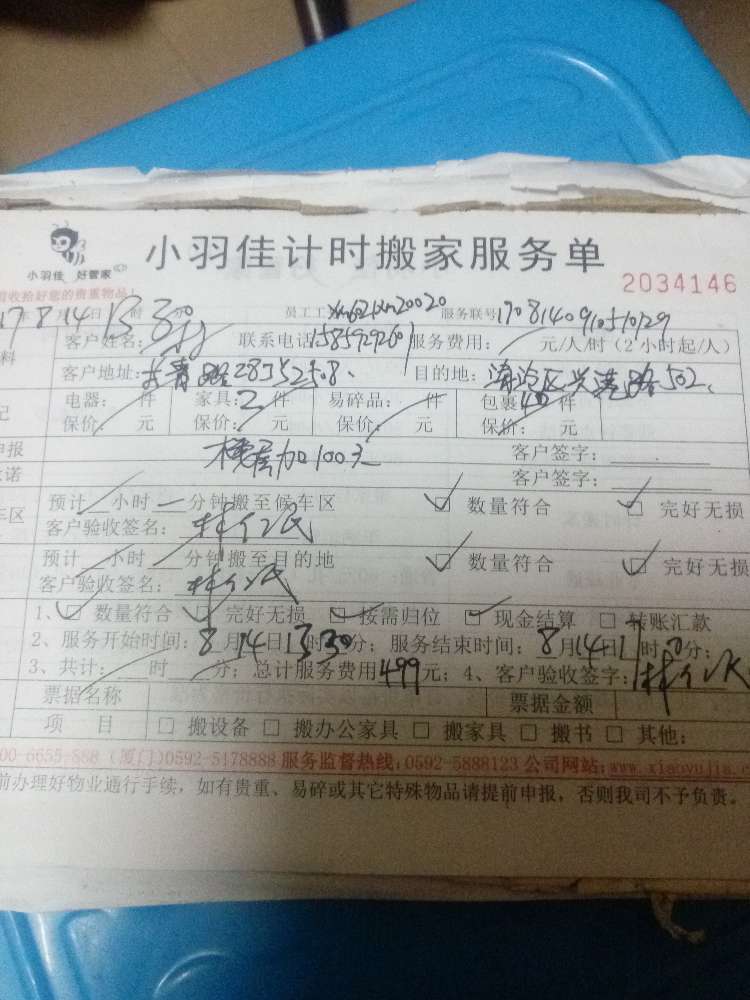 小羽佳 好管家
小羽佳计时搬家服务单
2034146
收拾好您的贵重物品!
17 8 14日13时30分 员工工 服务联号170814091051029
客户姓名: 联系电话 服务费用: 元/人/时(2小时起/人)
料 客户地址: 目的地:海沧区兴港路502
记 电器: 件 家具:2件 易碎品: 件 包裹40件
保价: 元 保价: 元 保价: 元 保价: 元
申报 楼层加100元 客户签字:
诺 客户签字:
车区 预计 小时 分钟搬至候车区 ☑ 数量符合 ☑ 完好无损
客户验收签名:
预计 小时 分钟搬至目的地 ☑ 数量符合 ☑ 完好无损
客户验收签名:
1、☑ 数量符合 ☑ 完好无损 ☑ 按需归位 ☑ 现金结算 □ 转账汇款
2、服务开始时间:8月14日13时30分;服务结束时间:8月14日 时 分;
3、共计: 时 分;总计服务费用499元;4、客户验收签字:
票据名称 票据金额
项 目 □ 搬设备 □ 搬办公家具 □ 搬家具 □ 搬书 □ 其他:
00-6655-588 (厦门)0592-5178888 服务监督热线:0592-5888123 公司网站:www.xiaoyujia.c
前办理好物业通行手续,如有贵重、易碎或其它特殊物品请提前申报,否则我司不予负责。